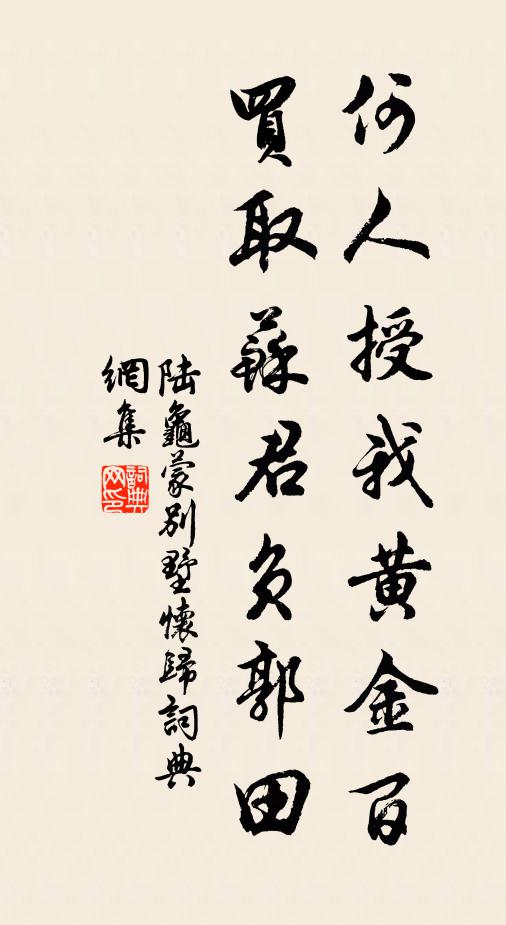 何人授我黄金百
買取蘇君負郭田
陆龜蒙别墅懷歸詞典
網集
詞典网印